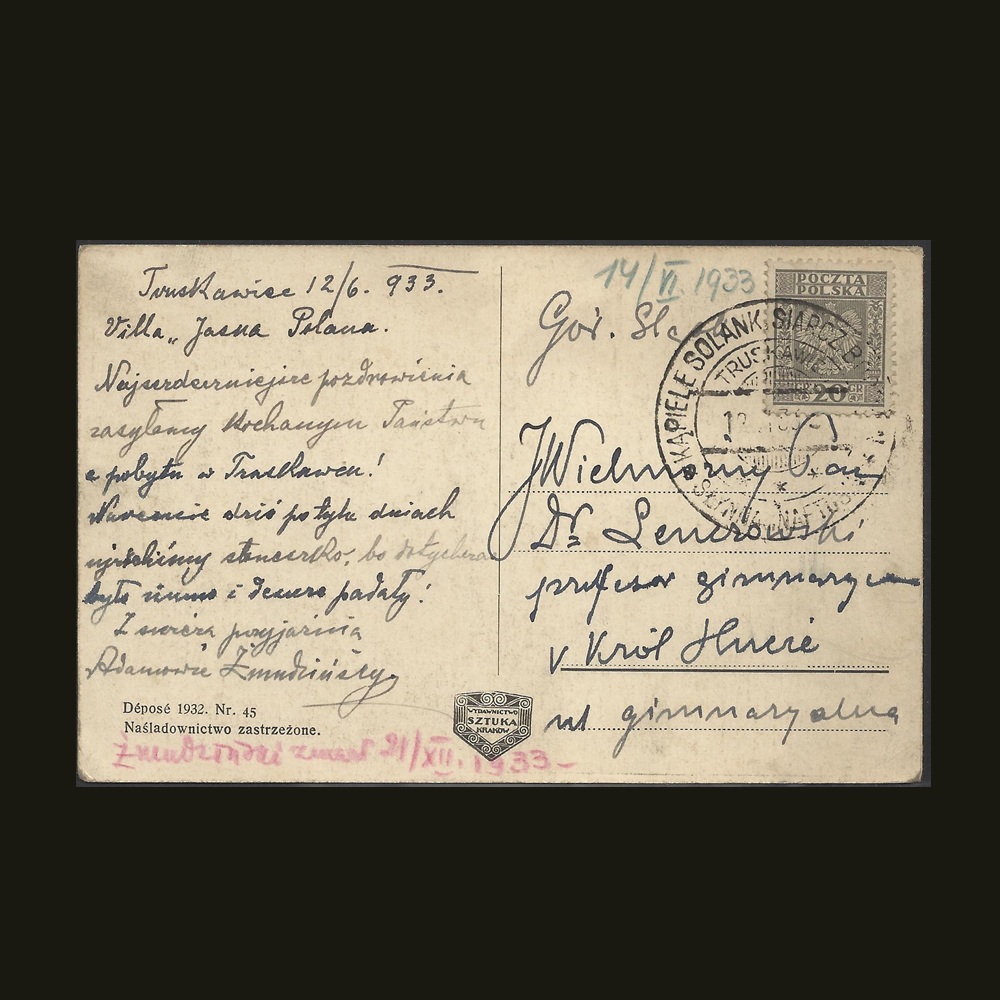 Truskawiec 12/6. 933.
Villa „ Jasna Polana.
Najserdeczniejsze pozdrowienia
zasyłamy Kochanym Państwu
z pobytu w Truskawcu!
Nareszcie dziś po tylu dniach
ujrzeliśmy słoneczko, bo dotychczas
było zimno i deszcze padały!
Z szczerą przyjaźnią
Adamowie Żmudzińscy
Déposé 1932. Nr. 45
Naśladownictwo zastrzeżone.
Żmudziński zmarł 21/XII. 1933 –
WYDAWNICTWO
SZTUKA
KRAKÓW
14/VI 1933
POCZTA
POLSKA
20 GR
KĄPIELE SOLANK. SIARCZ.
TRUSKAWIEC
Gór. Śląsk
JWielmożny Pan
Dr. Lenczowski
profesor gimnazyum
w Król Hucie
ul gimnazyalna